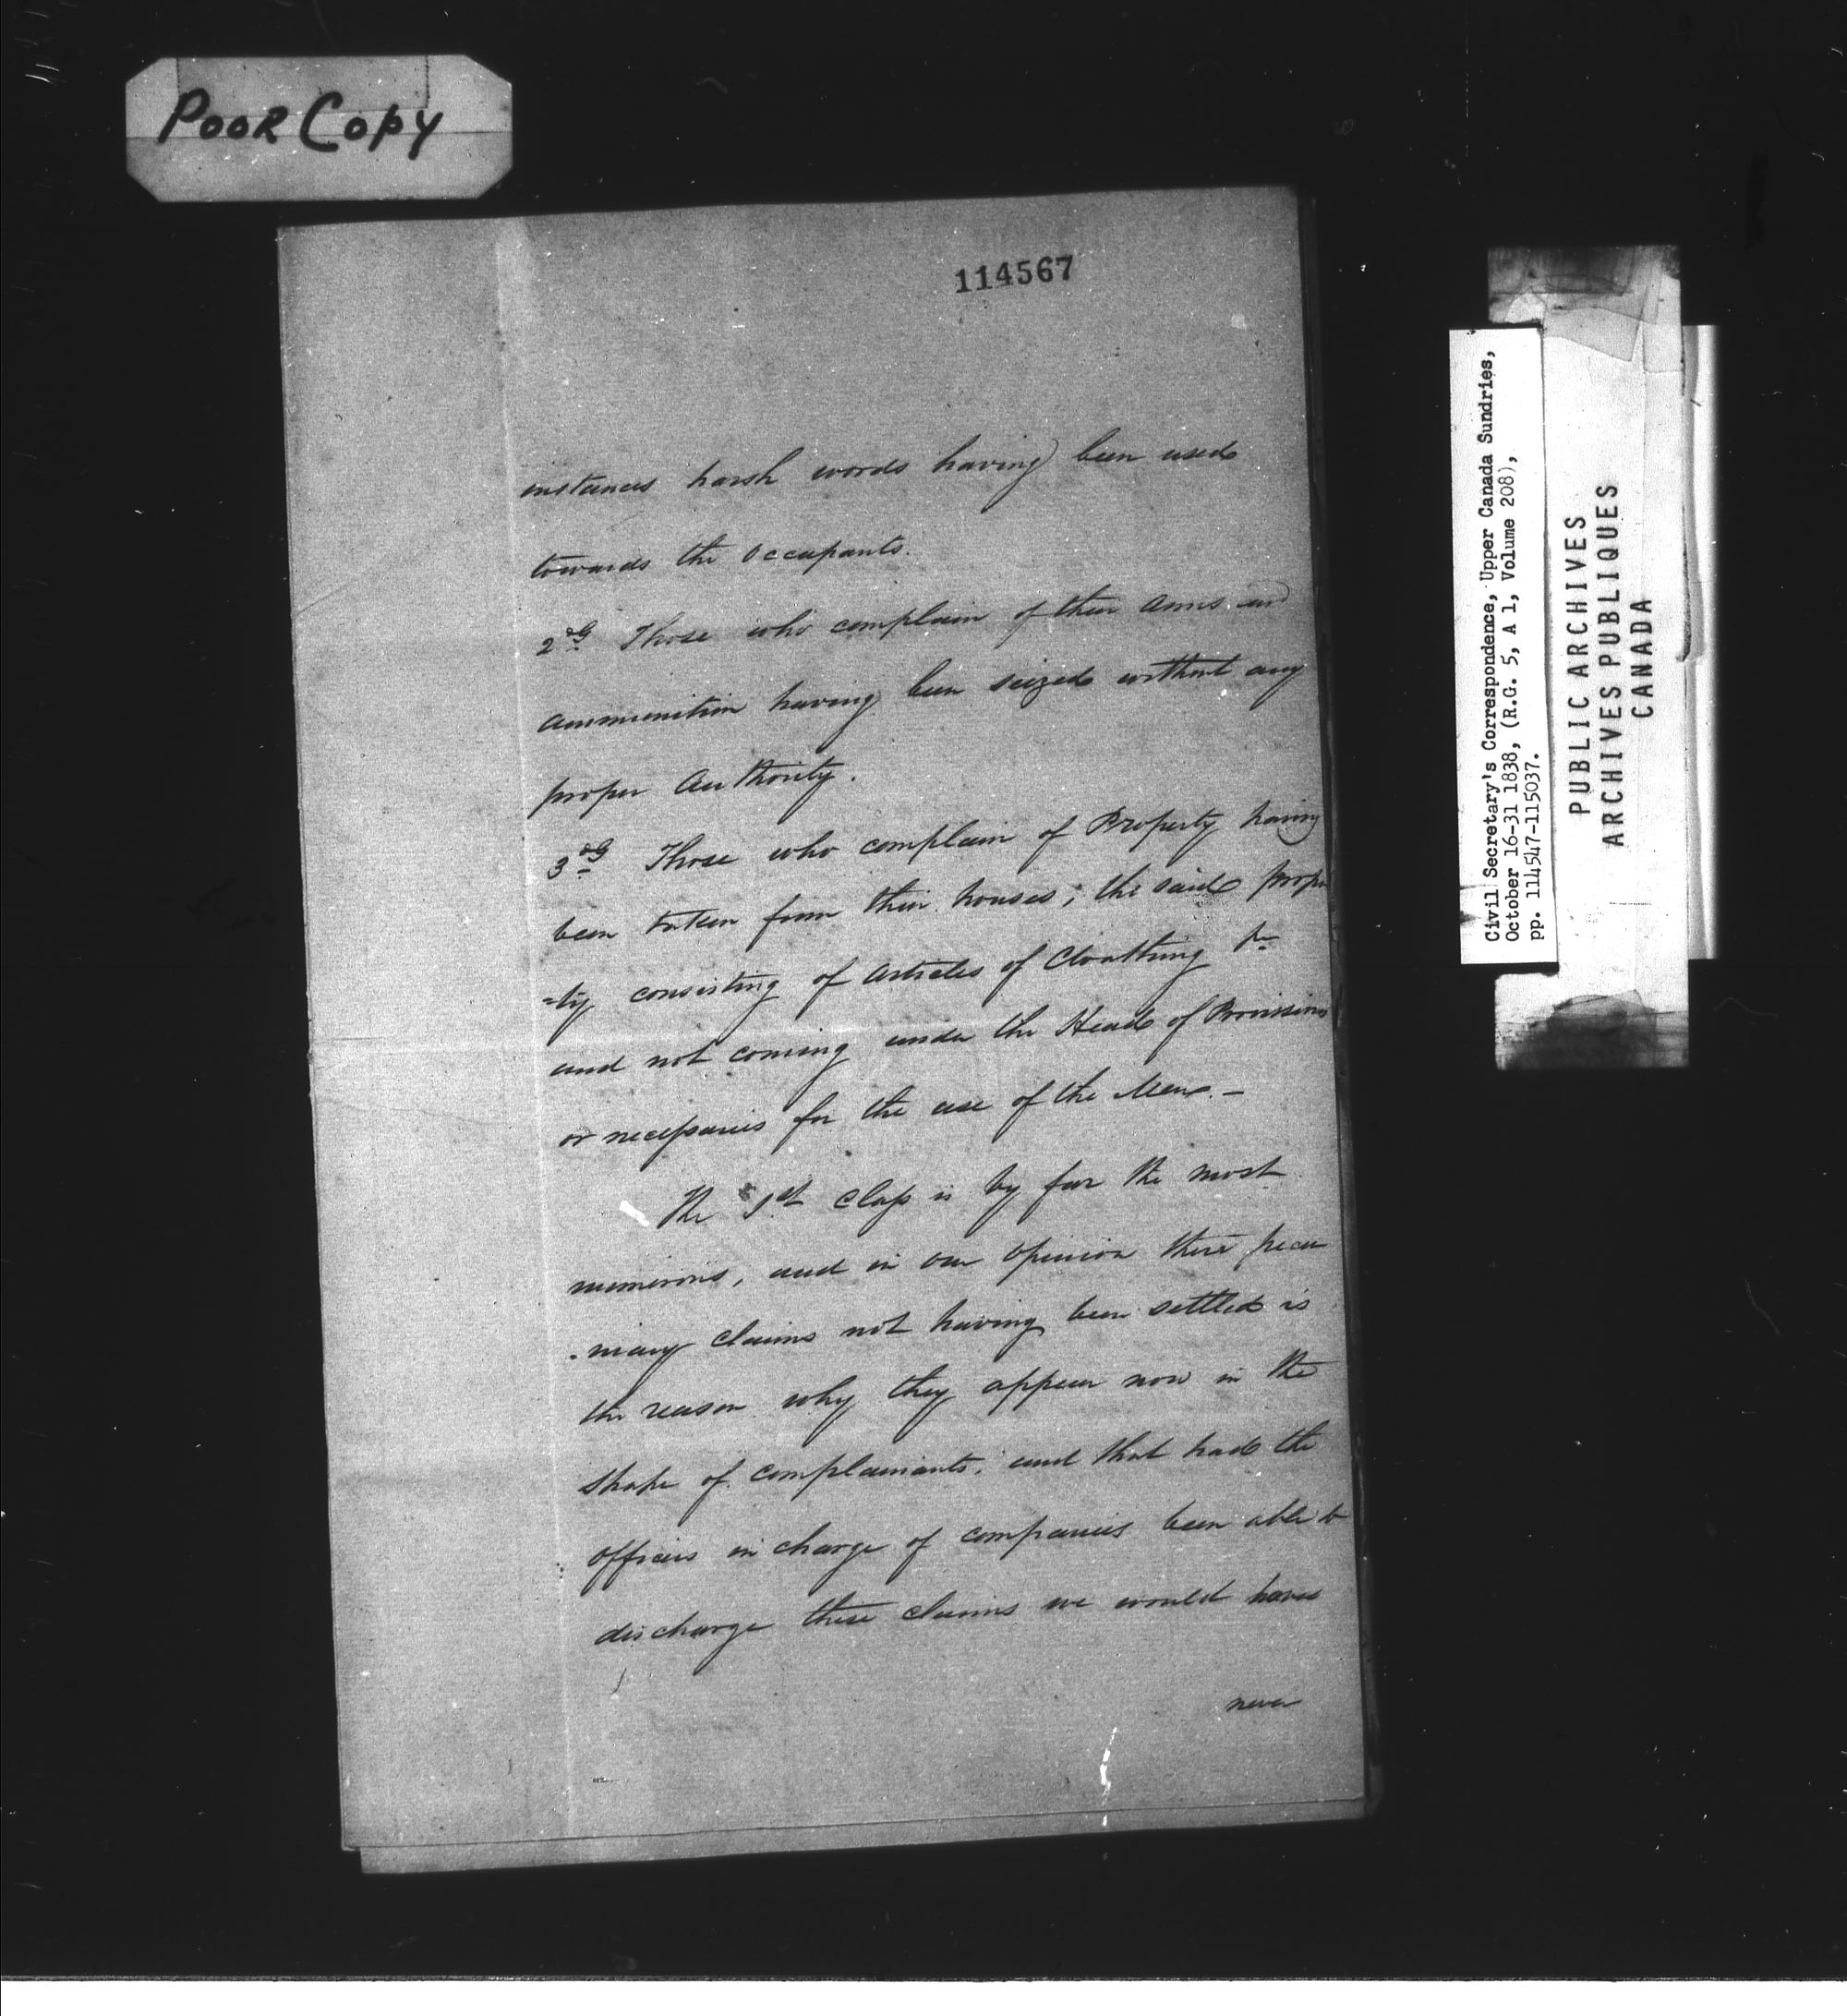 POOR COPY
114567
instances harsh words having been used
towards the Occupants.
2d Those who complain of their Arms and
ammunition having been seized without any
proper Authority.
3d Those who complain of Property having
been taken from their houses; the said proper
=ty consisting of articles of Cloathing &c
and not coming under the Head of Provisions
or necessaries for the use of the Men. —
The 1st Class is by far the most
numerous, and in our opinion there pecu
-niary claims not having been settled is
the reason why they appear now in the
shape of complainants, and that had the
officers in charge of companies been able to
discharge these claims we would have
never
Civil Secretary's Correspondence, Upper Canada Sundries,
October 16-31 1838, (R.G. 5, A 1, Volume 208),
pp. 114547-115037.
PUBLIC ARCHIVES
ARCHIVES PUBLIQUES
CANADA